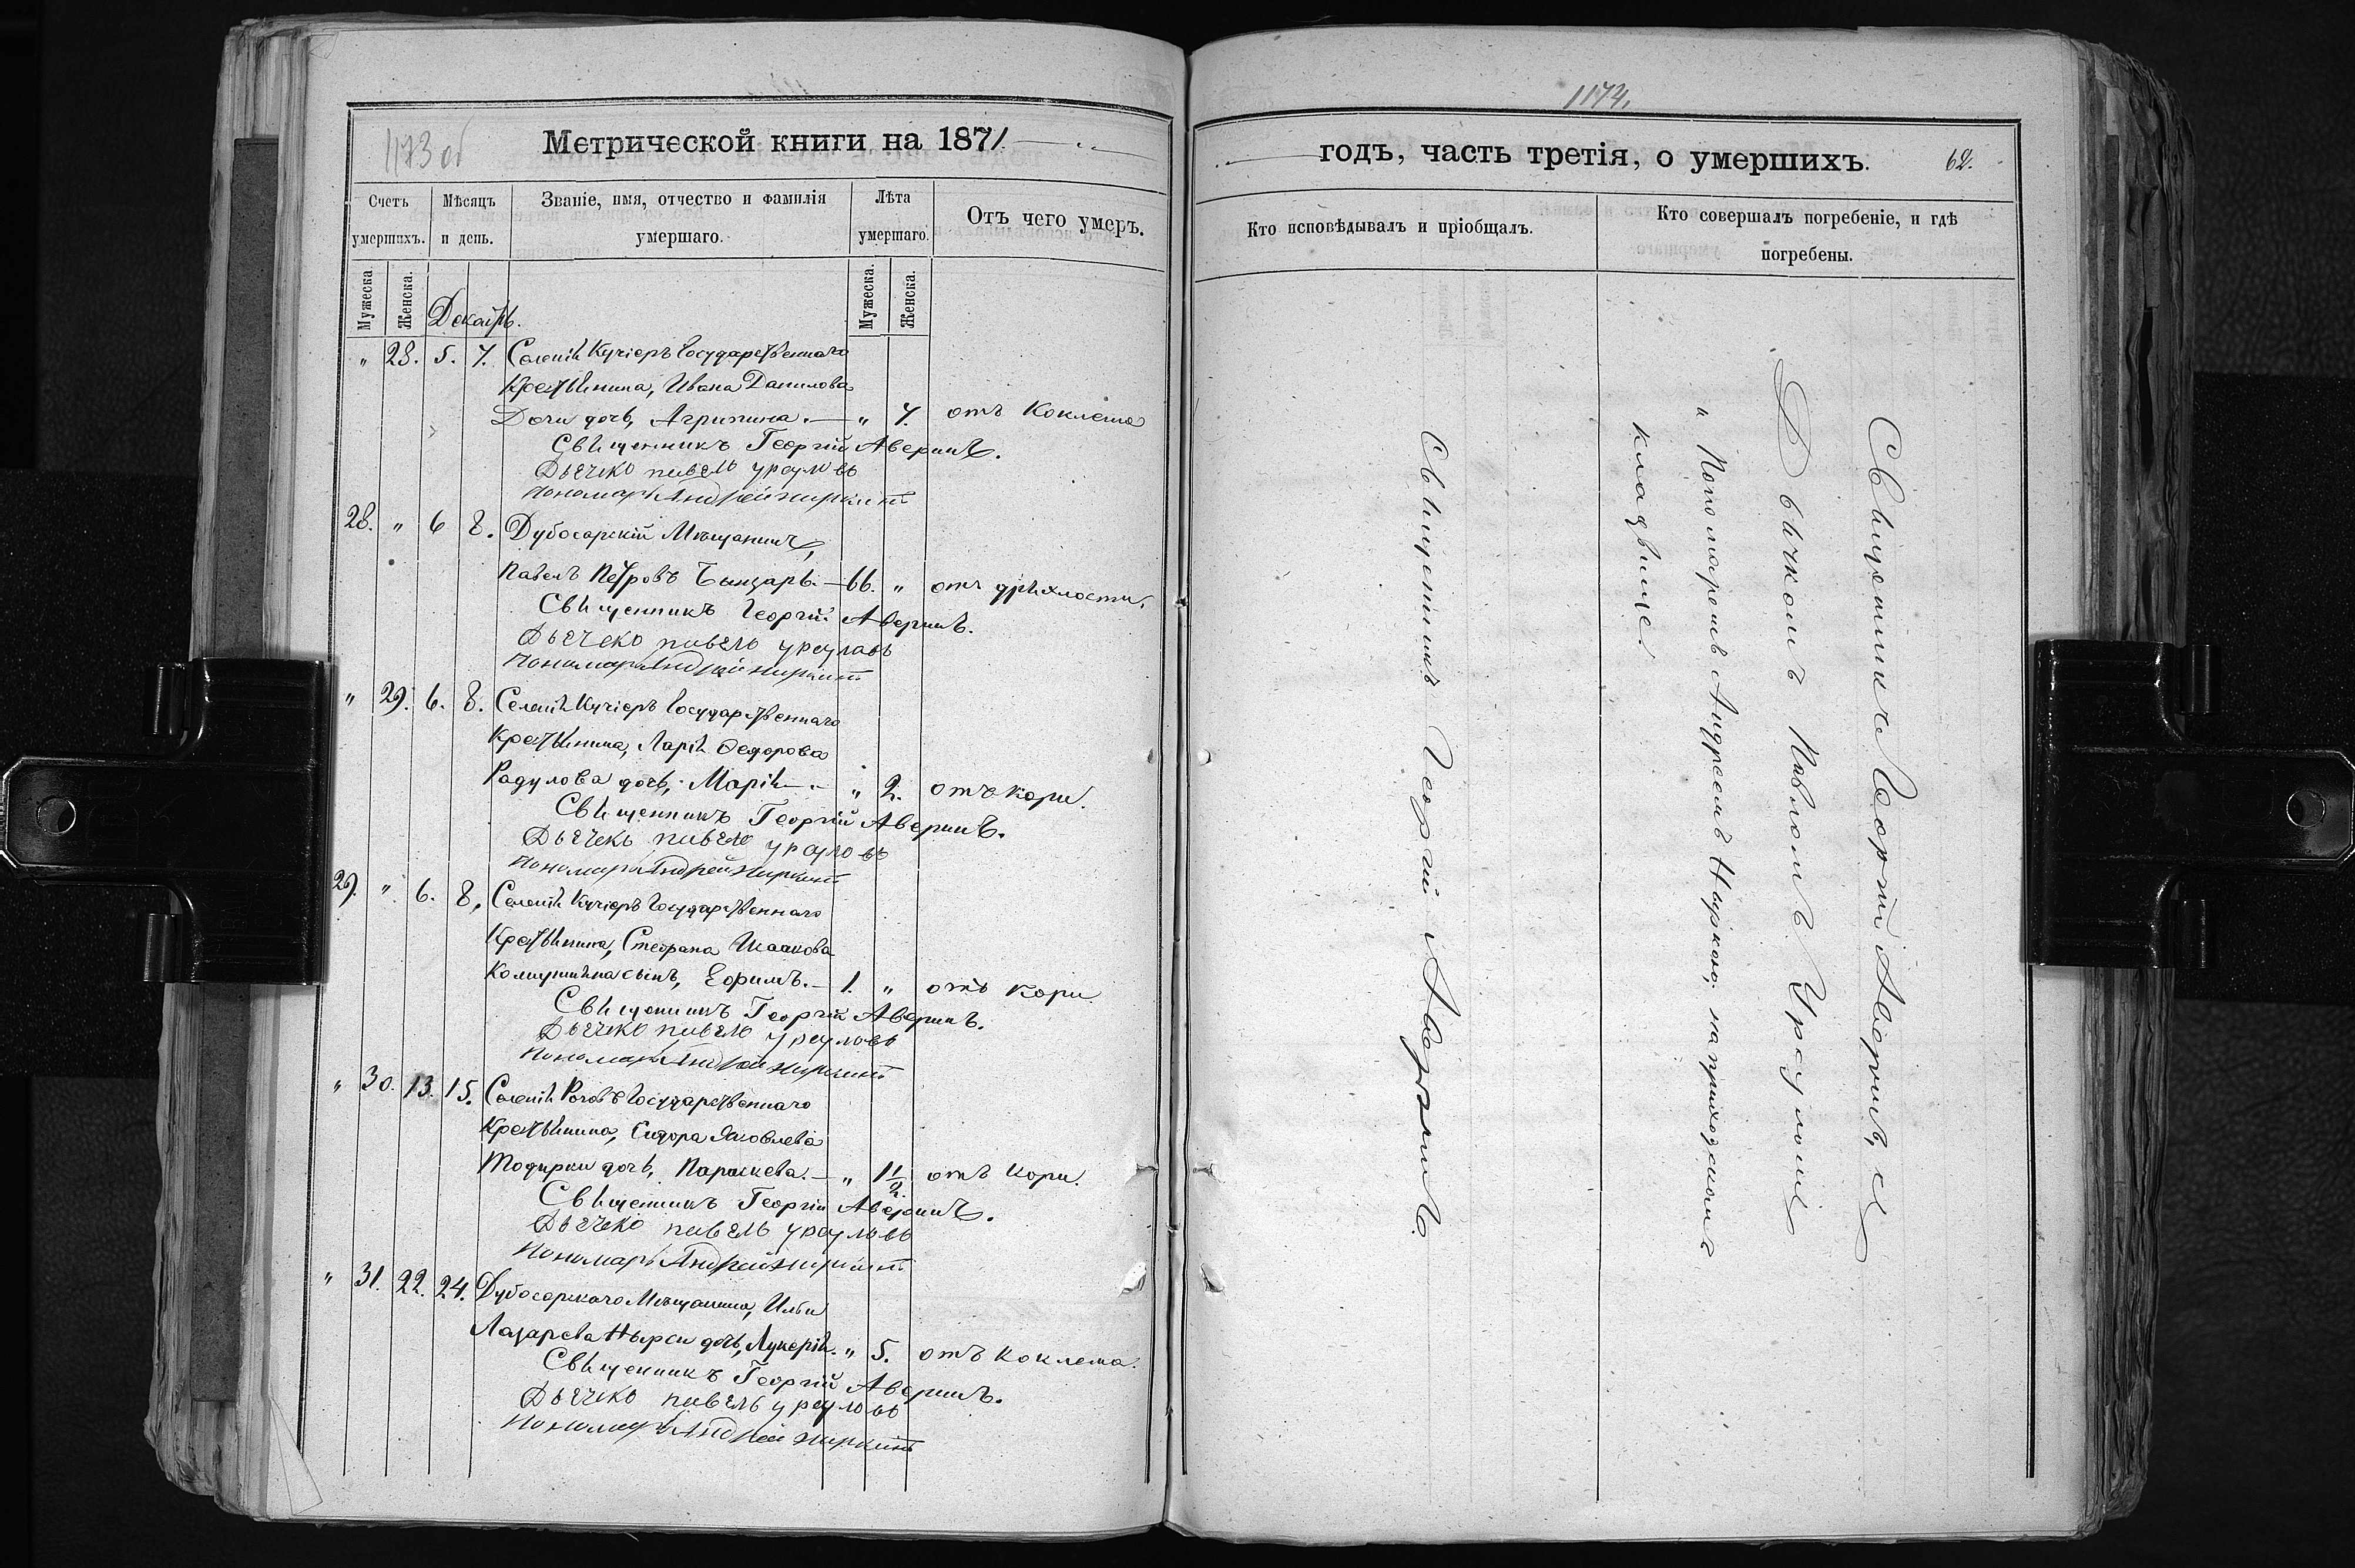 1173 об
Метрической книги на 1871
Счетъ умершихъ.
Мѣсяцъ и день.
Званіе, имя, отчество и фамилія умершаго.
Лѣта умершаго.
Отъ чего умеръ.
Мужеска.
Женска.
Мужеска.
Женска.
Декабрь.
" 28. 5. 7. Селенія Кучіеръ Государственнаго
Крестьянина, Ивана Данилова
дочь, Агрипина. — " 7. отъ Коклюша
Священникъ Георгій Авериинъ.
Дьячеко павелъ урсуловъ
Пономарь Андрей
28. " 6 8. Дубосарскій Мѣщанинъ,
Павелъ Петровъ Бынзарь. — 66. " отъ дряхлости.
Священникъ Георгій Авериинъ.
Дьячеко павелъ урсуловъ
Пономарь Андрей
" 29. 6. 8. Селенія Кучіеръ Государственнаго
Крестьянина, Ларія Ѳедорова
Радулова дочь, Марія — " 2. отъ кори.
Священникъ Георгій Авериинъ.
Дьячекъ павелъ урсуловъ
Пономарь Андрей
29. " 6. 8, Селенія Кучіеръ Государственнаго
Крестьянина, Стефана Исаакова
сынъ, Ефимъ. — 1. " отъ кори
Священникъ Георгій Авериинъ.
Дьячеко павелъ урсуловъ
Пономарь Андрей
" 30. 13. 15. Селенія Роговъ Государственнаго
Крестьянина, Сидора Яковлева
Тодирки дочь, Параскева. — " 1 1/2. отъ кори.
Священникъ Георгій Авериинъ.
Дьячеко павелъ урсуловъ
Пономарь Андрей
" 31. 22. 24. Дубосарскаго Мѣщанина, Ильи
Лазарева Нырси дочь, Лукерія. " 5. отъ Коклюша.
Священникъ Георгій Авериинъ.
Дьячеко павелъ урсуловъ
Пономарь Андрей
1174.
годъ, часть третія, о умершихъ.
62.
Кто исповѣдывалъ и пріобщалъ.
Кто совершалъ погребеніе, и гдѣ погребены.
Священникъ Георгій Авериинъ.
Священникъ Георгій Авериинъ, съ
Дьячкомъ Павломъ Урсуломъ
и Пономаремъ Андреемъ Ниркою, на приходскомъ
кладбище.